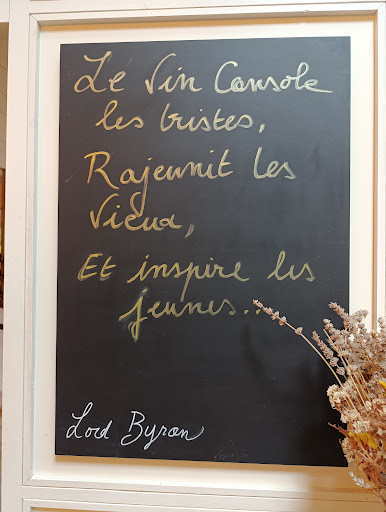 Le Vin Console
les tristes,
Rajeunit les
Vieux,
Et inspire les
jeunes...
Lord Byron